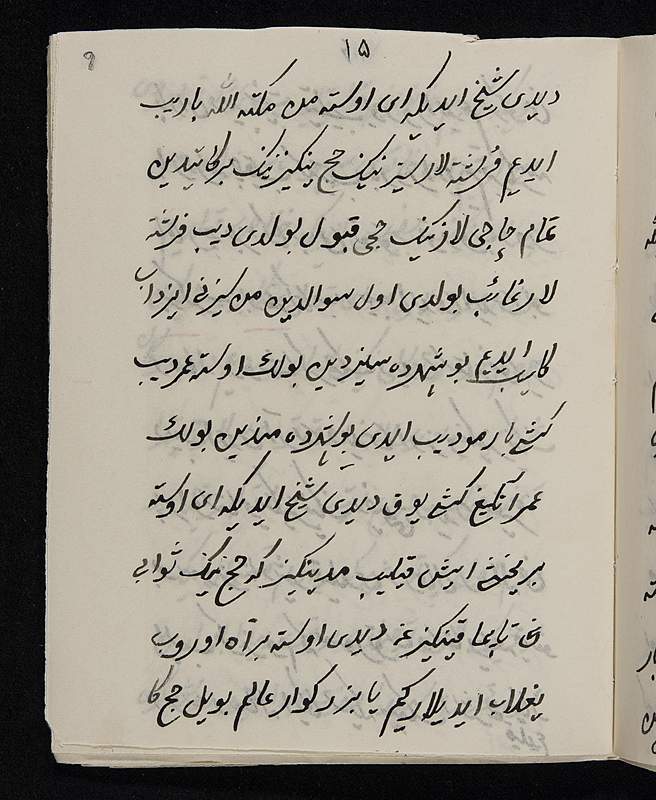 ۱۵
9
دیدی شیخ ایدیکه ای اوسته من مکته الله باریب
ایدیم فرشته لار سیز نینک حج ینکیزنینک برکاتیدین
تمام حاجی لارنینک حجی قبول بولدی دیب فرشته
لار غائب بولدی اول سوالدین من سیزنی ایزداب
کلیب ایدیم بو شهرده سیزدین بولک اوسته عمر دیب
کشی بار مو دیب ایدی بو شهرده مندین بولک
عمر آتلیغ کشی یوق دیدی شیخ ایدیکه ای اوسته
بر یخشی ایش قیلیب مدینکیز که حج نینک ثوابی
نی تابما قینکیزغه دیدی اوسته بر آه اوروب
یغلاب ایدیلار کیم یا بزرکوار عالم بو یل حج کا